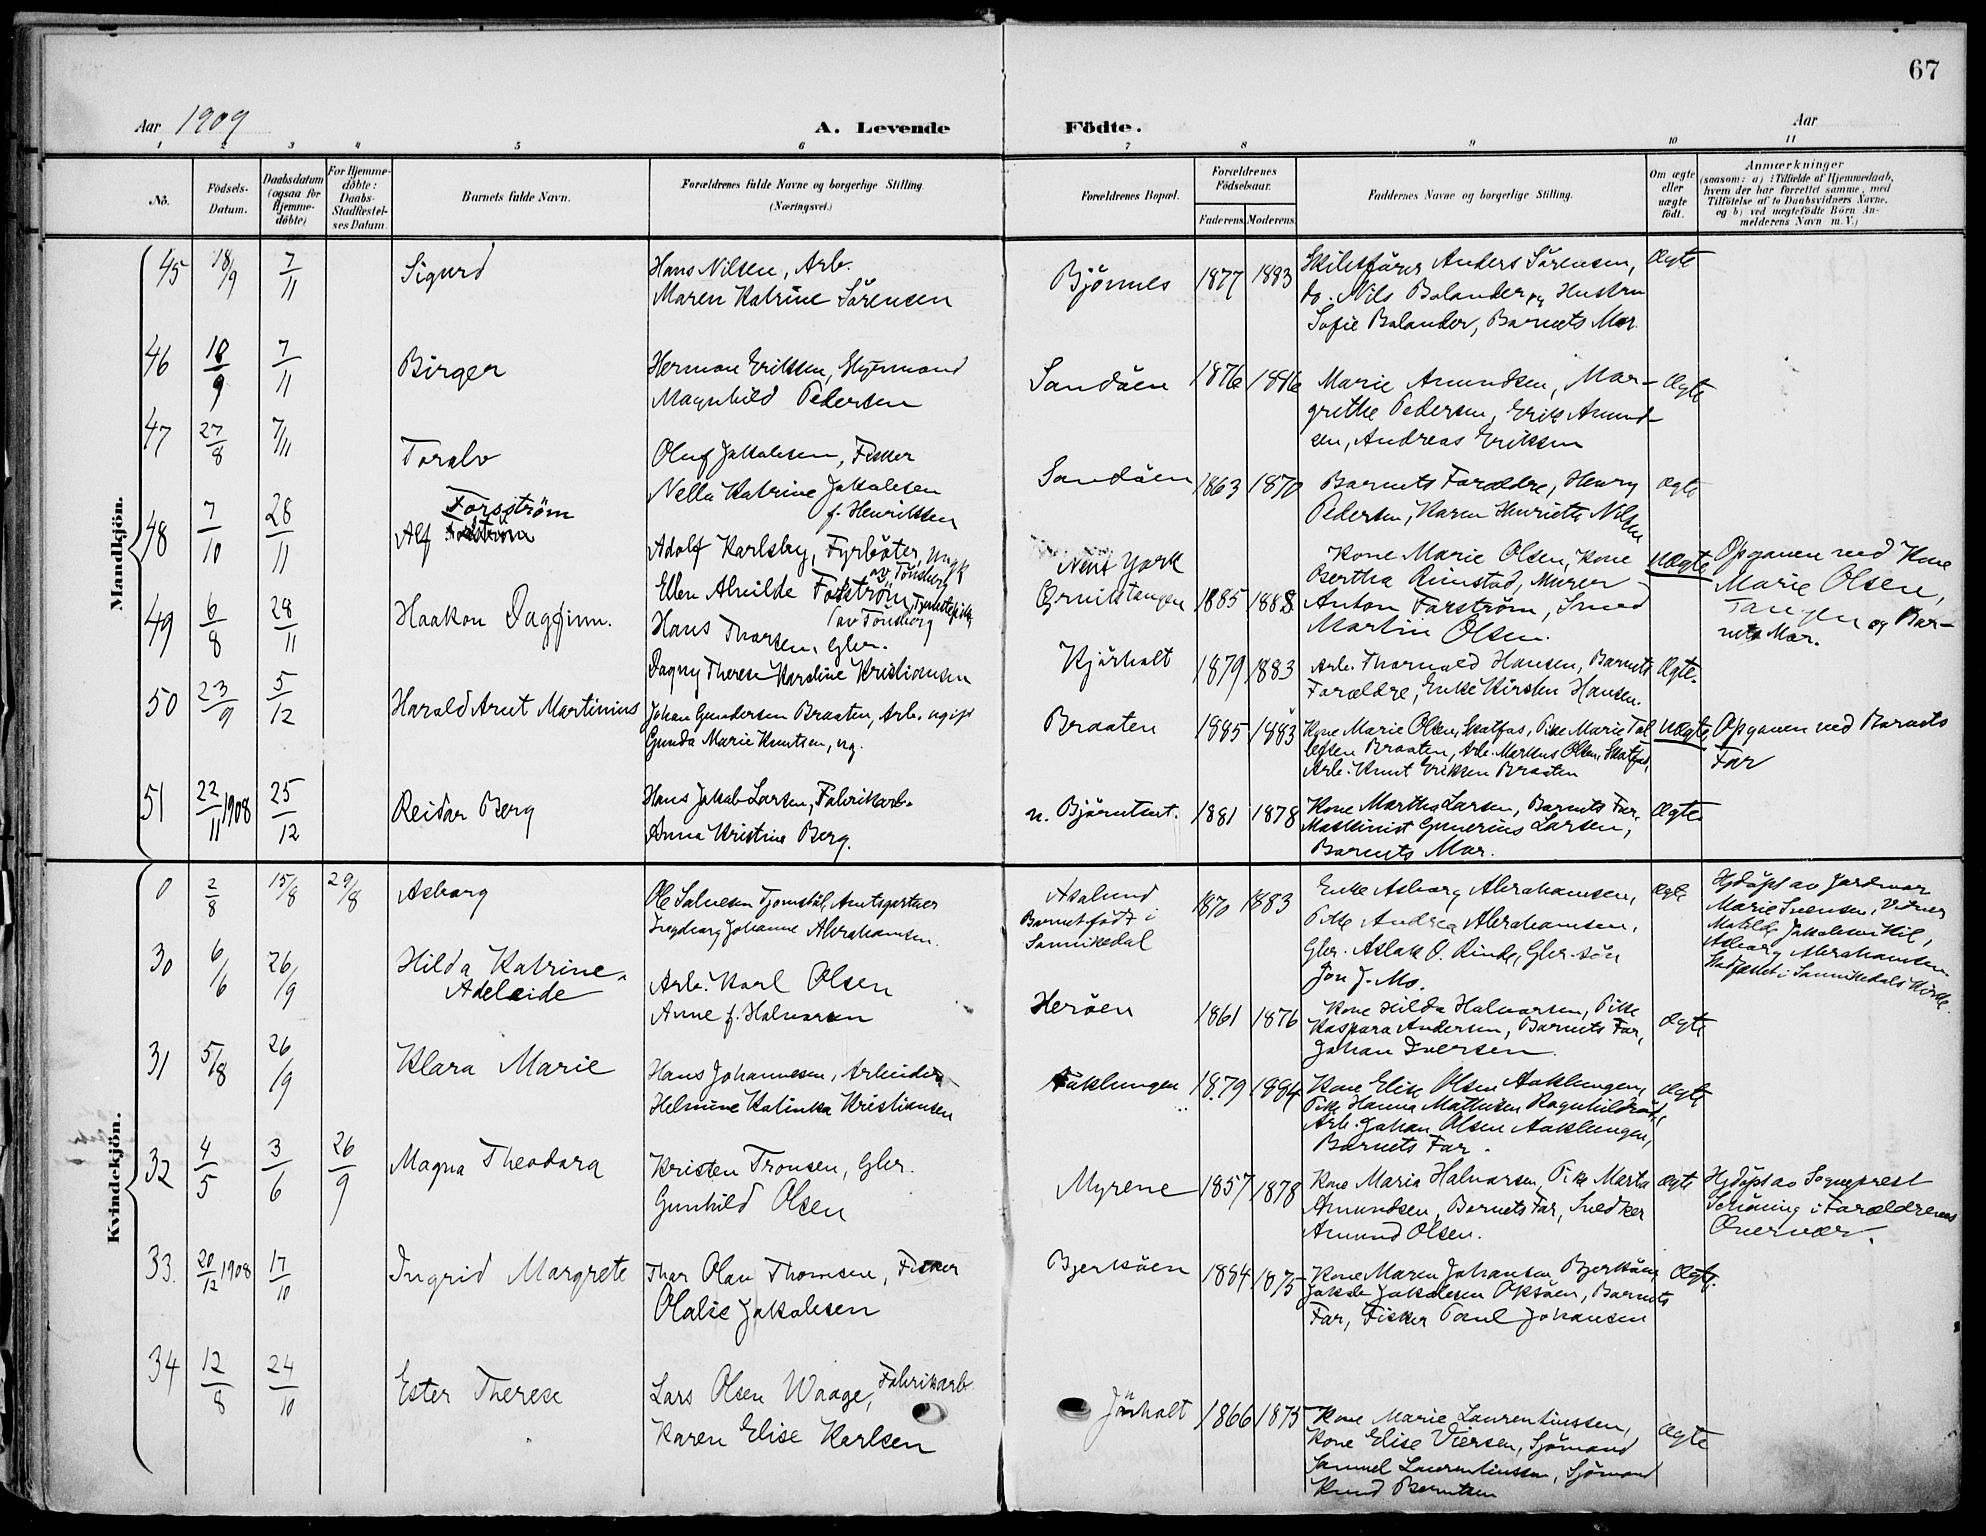 67
Aar 1909
A. Levende Födte.
Aar
1 2 3 4 5 6 7 8 9 10 11
No.
Födsels-Datum.
Daabsdatum (ogsaa for Hjemme-døbte)
For Hjemme-døbte: Daabs-Stadfæstel-ses Datum.
Barnets fulde Navn.
Forældrenes fulde Navne og borgerlige Stilling.
(Næringsvei.)
Forældrenes Bopæl.
Forældrenes Födselsaar.
Faderens. Moderens.
Faddernes Navne og borgerlige Stilling.
Om ægte eller uægte födt.
Anmærkninger
(saasom: a) i Tilfælde af Hjemmedaab,
hvem der har forrettet samme, med
Tilföielse af to Daabsvidners Navne.
og b) ved uægtefödte Börn An-
melderens Navn m. V.)
Mandkjön.
45 18/9 7/11 Sigurd
Hans Nilsen, Arb.
Maren Katrine Sörensen
Björnnes 1877 1883
Anders Sörensen,
do. Nils Bolander og Hustru
Sofie Bolander, Barnets Mor.
Ægte
46 18/9 7/11 Birger
Herman Eriksen, Styrmand
Magnhild Pedersen
Sandöen 1876 1886
Marie Amundsen, Mar-
grethe Pedersen, Erik Amund-
sen, Andreas Eriksen
Ægte
47 27/8 7/11 Toralv
Oluf Jakobsen, Fisker
Nella Katrine Jakobsen
f. Henriksen
Sandöen 1863 1870
Barnets Forældre, Henry
Pedersen, Karen Henriette Nilsen
Ægte
48 7/10 28/11 Alf Forsström
Adolf Karlsby, Fyrböter, Ungk
av Tönsberg
Ellen Alvilde Forström, Tjenestepike
(av Tönsberg
New York
Örvikstangen 1885 1888
Kone Marie Olsen, Kone
Bertha Rimstad, Murer
Anton Farström, Smed
Martin Olsen.
Uægte
Opgaven ved Kone
Marie Olsen,
Tangen og Bar-
nets Mor.
49 6/8 28/11 Haakon Dagfinn.
Hans Thorsen, Gbr.
Dagny Therese Karoline Kristiansen
Kjörholt 1879 1883
Arb. Thorvald Hansen, Barnets
Forældre, Enke Kirsten Hansen.
Ægte.
50 23/9 5/12 Harald Arnt Martinius
Johan Gundersen Braaten, Arb. ugift
Gunda Marie Knutsen, ug.
Braaten 1885 1883
Kone Marie Olsen, Skotfos, Pike Marie Tol
lefsen Braaten, Arb. Markus Olsen, Skotfos,
Arb. Knut Eriksen Braaten
Uægte
Opgaven ved Barnets
Far
51 22/11 1908 25/12 Reidar Berg
Hans Jakob Larsen, Fabrikarb.
Anna Kristine Berg.
n. Björntvet. 1881 1878
Kone Martha Larsen, Barnets Far,
Maskinist Gunerius Larsen,
Barnets Mor.
Ægte
Kvindekjön.
0 2/8 15/8 29/8 Asborg
Ole Salvesen Tjomstöl, Amtsgartner
Ingeborg Johanne Abrahamsen.
Aasland
Barnet födt i
Sannikedal
1870 1883
Enke Asborg Abrahamsen,
Pike Andrea Abrahamsen,
Gbr. Aslak O. Rinde, Gbr. sön
Jon J. Mo.
Ægte
Hjdöpt av Jordmor
Marie Svensen, Vidner
Matilde Jakobsen Kil,
Asborg Abrahamsen
Stadfæstet i Sannikedals Kirke.
30 6/6 26/9 Hilda Katrine
Adeleide
Arb. Karl Olsen
Anne f. Halvorsen
Heröen 1861 1876
Kone Hilda Halvorsen, Pike
Kaspara Andersen, Barnets Far,
Johan Iversen.
Ægte
31 5/8 26/9 Klara Marie
Hans Johannesen, Arbeider
Helmine Katinka Kristiansen
Aaklungen 1879 1884
Kone Elise Olsen Aaklungen,
Pike Hanna Mathisen Ragnhildröd,
Arb. Johan Olsen Aaklungen,
Barnets Far.
Ægte
32 4/5 3/6 26/9 Magna Theodora
Kristen Tronsen, Gbr.
Gunhild Olsen
Myrene 1857 1878
Kone Maria Halvorsen, Pike Marta
Amundsen, Barnets Far, Snedker
Amund Olsen.
Ægte
Hjdöpt av Sogneprest
Schöning i Forældrenes
Overvær.
33. 20/12 1908 17/10 Ingrid Margrete
Thor Olau Thomsen, Fisker
Olalie Jakobsen
Bjerköen 1884 1875
Kone Maren Johansen Bjerköen,
Jakob Jakobsen Oksöen, Barnets
Far, Fisker Paul Johansen
Ægte.
34 12/8 24/10 Ester Therese
Lars Olsen Waage, Fabrikarb.
Karen Elise Karlsen
Jönholt 1866 1875
Kone Marie Laurentiussen,
Kone Elise Viersen, Sjömand
Samuel Laurentiussen, Sjömand
Knud Berntsen
Ægte